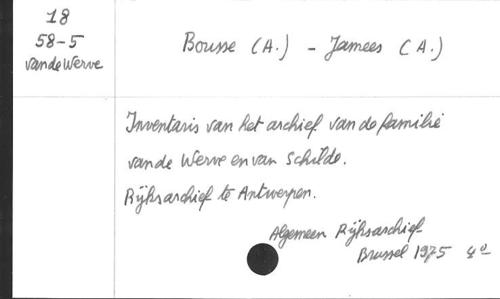 18
58-5
vandeWerve
Bousse (A.) - Jamees (A.)
Inventaris van het archief van de familie
van de Werve en van Schilde.
Rijksarchief te Antwerpen.
Algemeen Rijksarchief
Brussel 1975 4°